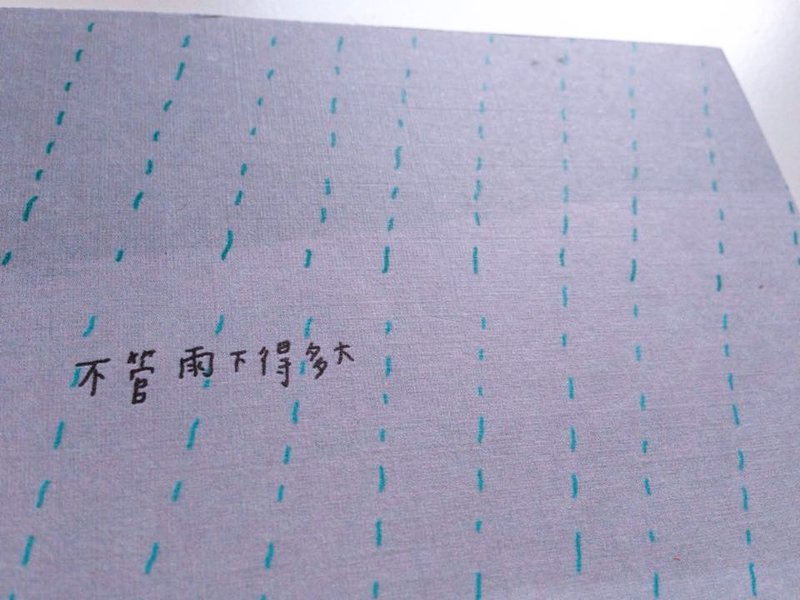 不管雨下得多大